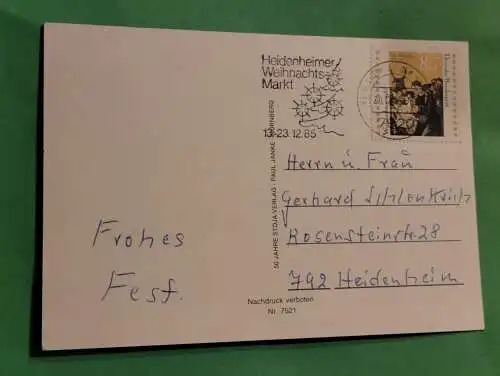 Heidenheimer
Weihnachts-
Markt
13.-23.12.85
50 JAHRE STOJA VERLAG · PAUL JANKE · NÜRNBERG
Herrn u. Frau
Gerhard
Rosensteinstr. 28
792 Heidenheim
Frohes
Fest.
Nachdruck verboten
Nr. 7521